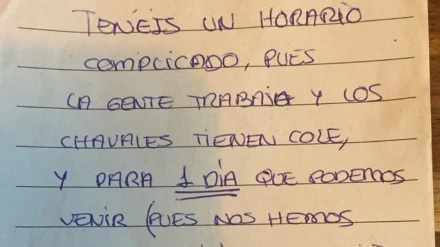 TENÉIS UN HORARIO
COMPLICADO, PUES
LA GENTE TRABAJA Y LOS
CHAVALES TIENEN COLE,
Y PARA 1 DÍA QUE PODEMOS
VENIR (PUES NOS HEMOS